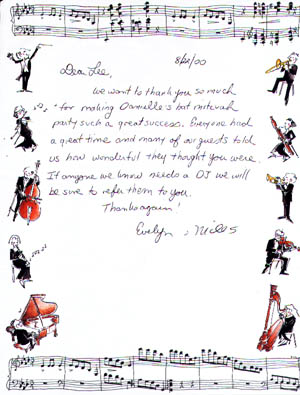 8/21/00
Dear Lee,
We want to thank you so much
for making Danielle's bat mitzvah
party such a great success. Everyone had
a great time and many of our guests told
us how wonderful they thought you were.
If anyone we know needs a DJ we will
be sure to refer them to you.
Thanks again!
Evelyn